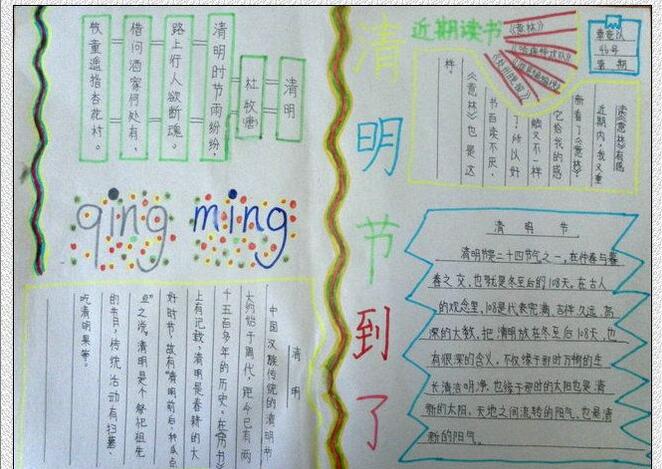 清明
杜牧(唐)
清明时节雨纷纷,
路上行人欲断魂。
借问酒家何处有,
牧童遥指杏花村。
qing ming
清明
中国汉族传统的清明节
大约始于周代,距今已有两
千五百多年的历史。在《周书》
上有记载,清明是春耕的大
好时节,故有“清明前后,种瓜点
豆”之说。清明是个祭祀祖先
的节日,传统活动有扫墓、
吃清明果等。
清明节到了
近期读书
《意林》
读《意林》有感
近期内,我又重
新看了《意林》
它给我的感
触又不一样
了!所以好
书百读不厌,
《意林》也是这
样
清明节
清明是二十四节气之一,在仲春与暮
春之交,也就是冬至后的108天。在古人
的观念里,108是代表完满、吉祥、久远、高
深的大数,把清明放在冬至后108天,也
有很深的含义,不仅缘于那时万物的生
长清洁明净,也缘于那时的太阳也是清
新的太阳,天地之间流转的阳气,也是清
新的阳气。